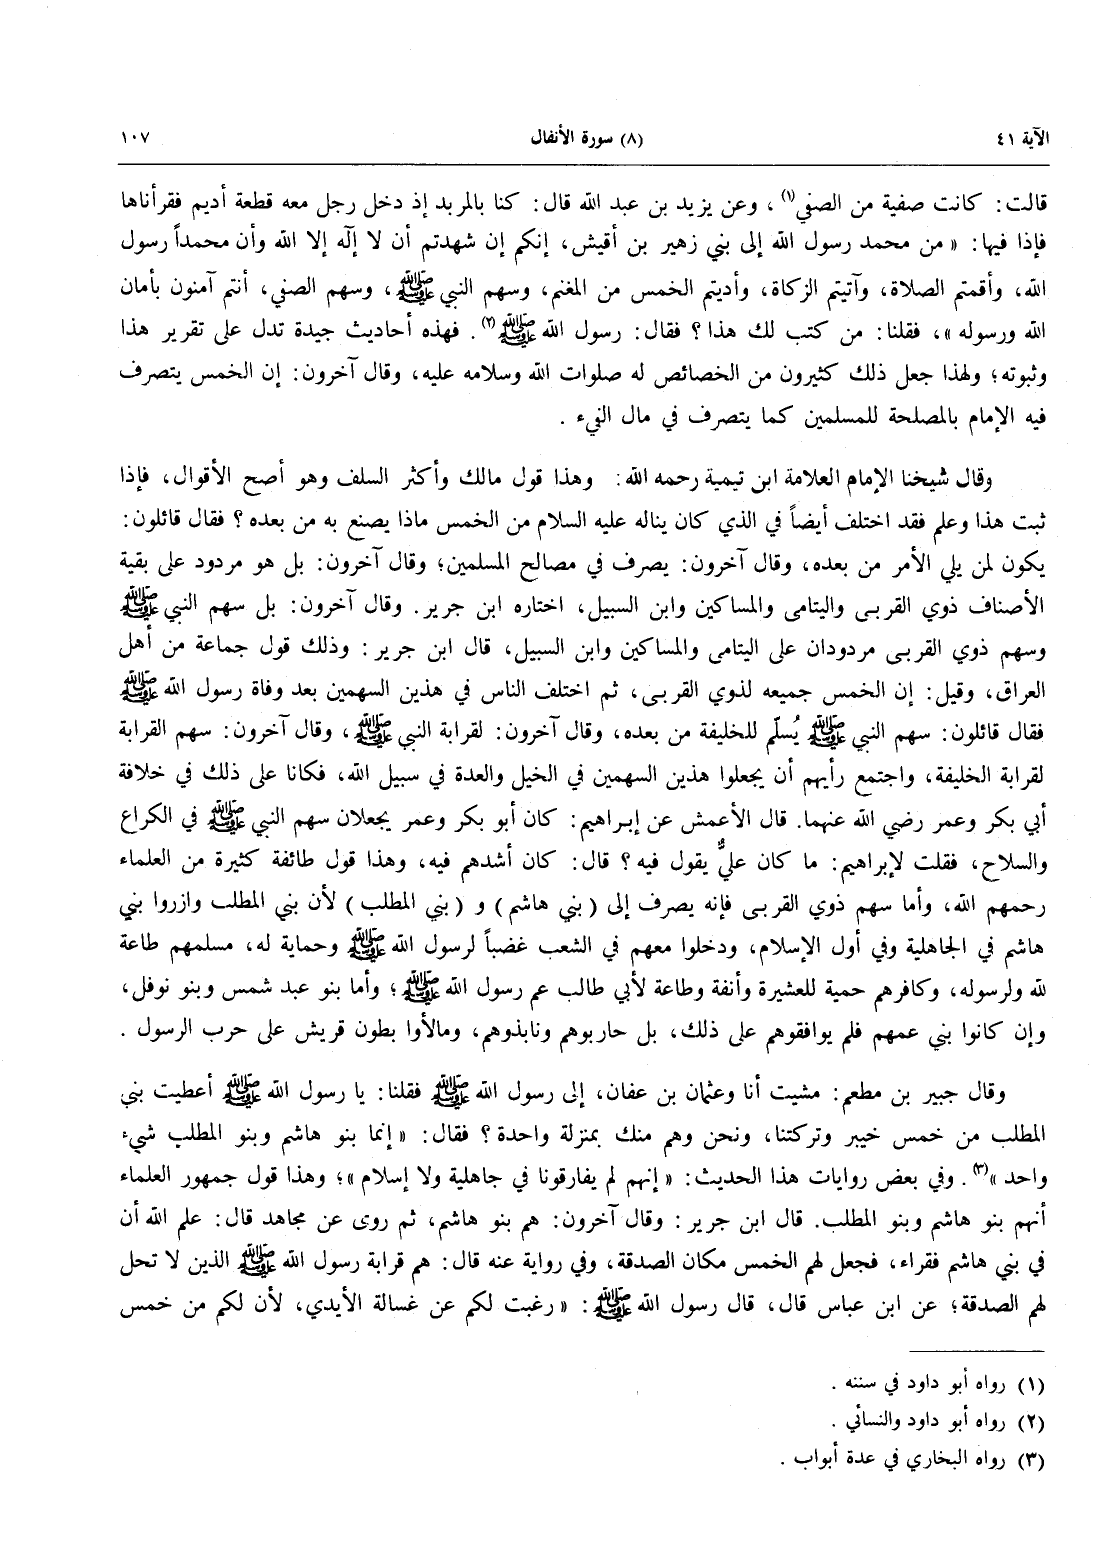 الآية ٤١ (٨) سورة الأنفال ١٠٧
قالت: كانت صفية من الصفي(١)، وعن يزيد بن عبد الله قال: كنا بالمربد إذ دخل رجل معه قطعة أديم فقرأناها
فإذا فيها: « من محمد رسول الله إلى بني زهير بن أقيش، إنكم إن شهدتم أن لا إلٓه إلا الله وأن محمداً رسول
الله، وأقمتم الصلاة، وآتيتم الزكاة، وأديتم الخمس من المغنم، وسهم النبي ﷺ، وسهم الصفي، أنتم آمنون بأمان
الله ورسوله »، فقلنا: من كتب لك هذا؟ فقال: رسول الله ﷺ(٢). فهذه أحاديث جيدة تدل على تقرير هذا
وثبوته؛ ولهذا جعل ذلك كثيرون من الخصائص له صلوات الله وسلامه عليه، وقال آخرون: إن الخمس يتصرف
فيه الإمام بالمصلحة للمسلمين كما يتصرف في مال الفيء .
وقال شيخنا الإمام العلامة ابن تيمية رحمه الله: وهذا قول مالك وأكثر السلف وهو أصح الأقوال، فإذا
ثبت هذا وعلم فقد اختلف أيضاً في الذي كان يناله عليه السلام من الخمس ماذا يصنع به من بعده؟ فقال قائلون:
يكون لمن يلي الأمر من بعده، وقال آخرون: يصرف في مصالح المسلمين؛ وقال آخرون: بل هو مردود على بقية
الأصناف ذوي القربى واليتامى والمساكين وابن السبيل، اختاره ابن جرير. وقال آخرون: بل سهم النبي ﷺ
وسهم ذوي القربى مردودان على اليتامى والمساكين وابن السبيل، قال ابن جرير: وذلك قول جماعة من أهل
العراق، وقيل: إن الخمس جميعه لذوي القربى، ثم اختلف الناس في هذين السهمين بعد وفاة رسول الله ﷺ
فقال قائلون: سهم النبي ﷺ يُسلّم للخليفة من بعده، وقال آخرون: لقرابة النبي ﷺ، وقال آخرون: سهم القرابة
لقرابة الخليفة، واجتمع رأيهم أن يجعلوا هذين السهمين في الخيل والعدة في سبيل الله، فكانا على ذلك في خلافة
أبي بكر وعمر رضي الله عنهما. قال الأعمش عن إبراهيم: كان أبو بكر وعمر يجعلان سهم النبي ﷺ في الكراع
والسلاح، فقلت لإبراهيم: ما كان عليٌّ يقول فيه؟ قال: كان أشدهم فيه، وهذا قول طائفة كثيرة من العلماء
رحمهم الله، وأما سهم ذوي القربى فإنه يصرف إلى ( بني هاشم ) و ( بني المطلب ) لأن بني المطلب وازروا بني
هاشم في الجاهلية وفي أول الإسلام، ودخلوا معهم في الشعب غضباً لرسول الله ﷺ وحماية له، مسلمهم طاعة
لله ولرسوله، وكافرهم حمية للعشيرة وأنفة وطاعة لأبي طالب عم رسول الله ﷺ؛ وأما بنو عبد شمس وبنو نوفل،
وإن كانوا بني عمهم فلم يوافقوهم على ذلك، بل حاربوهم ونابذوهم، ومالأوا بطون قريش على حرب الرسول .
وقال جبير بن مطعم: مشيت أنا وعثمان بن عفان، إلى رسول الله ﷺ فقلنا: يا رسول الله ﷺ أعطيت بني
المطلب من خمس خيبر وتركتنا، ونحن وهم منك بمنزلة واحدة؟ فقال: « إنما بنو هاشم وبنو المطلب شيء
واحد »(٣). وفي بعض روايات هذا الحديث: « إنهم لم يفارقونا في جاهلية ولا إسلام »؛ وهذا قول جمهور العلماء
أنهم بنو هاشم وبنو المطلب. قال ابن جرير: وقال آخرون: هم بنو هاشم، ثم روى عن مجاهد قال: علم الله أن
في بني هاشم فقراء، فجعل لهم الخمس مكان الصدقة، وفي رواية عنه قال: هم قرابة رسول الله ﷺ الذين لا تحل
لهم الصدقة؛ عن ابن عباس قال، قال رسول الله ﷺ: « رغبت لكم عن غسالة الأيدي، لأن لكم من خمس
(١) رواه أبو داود في سننه .
(٢) رواه أبو داود والنسائي .
(٣) رواه البخاري في عدة أبواب .